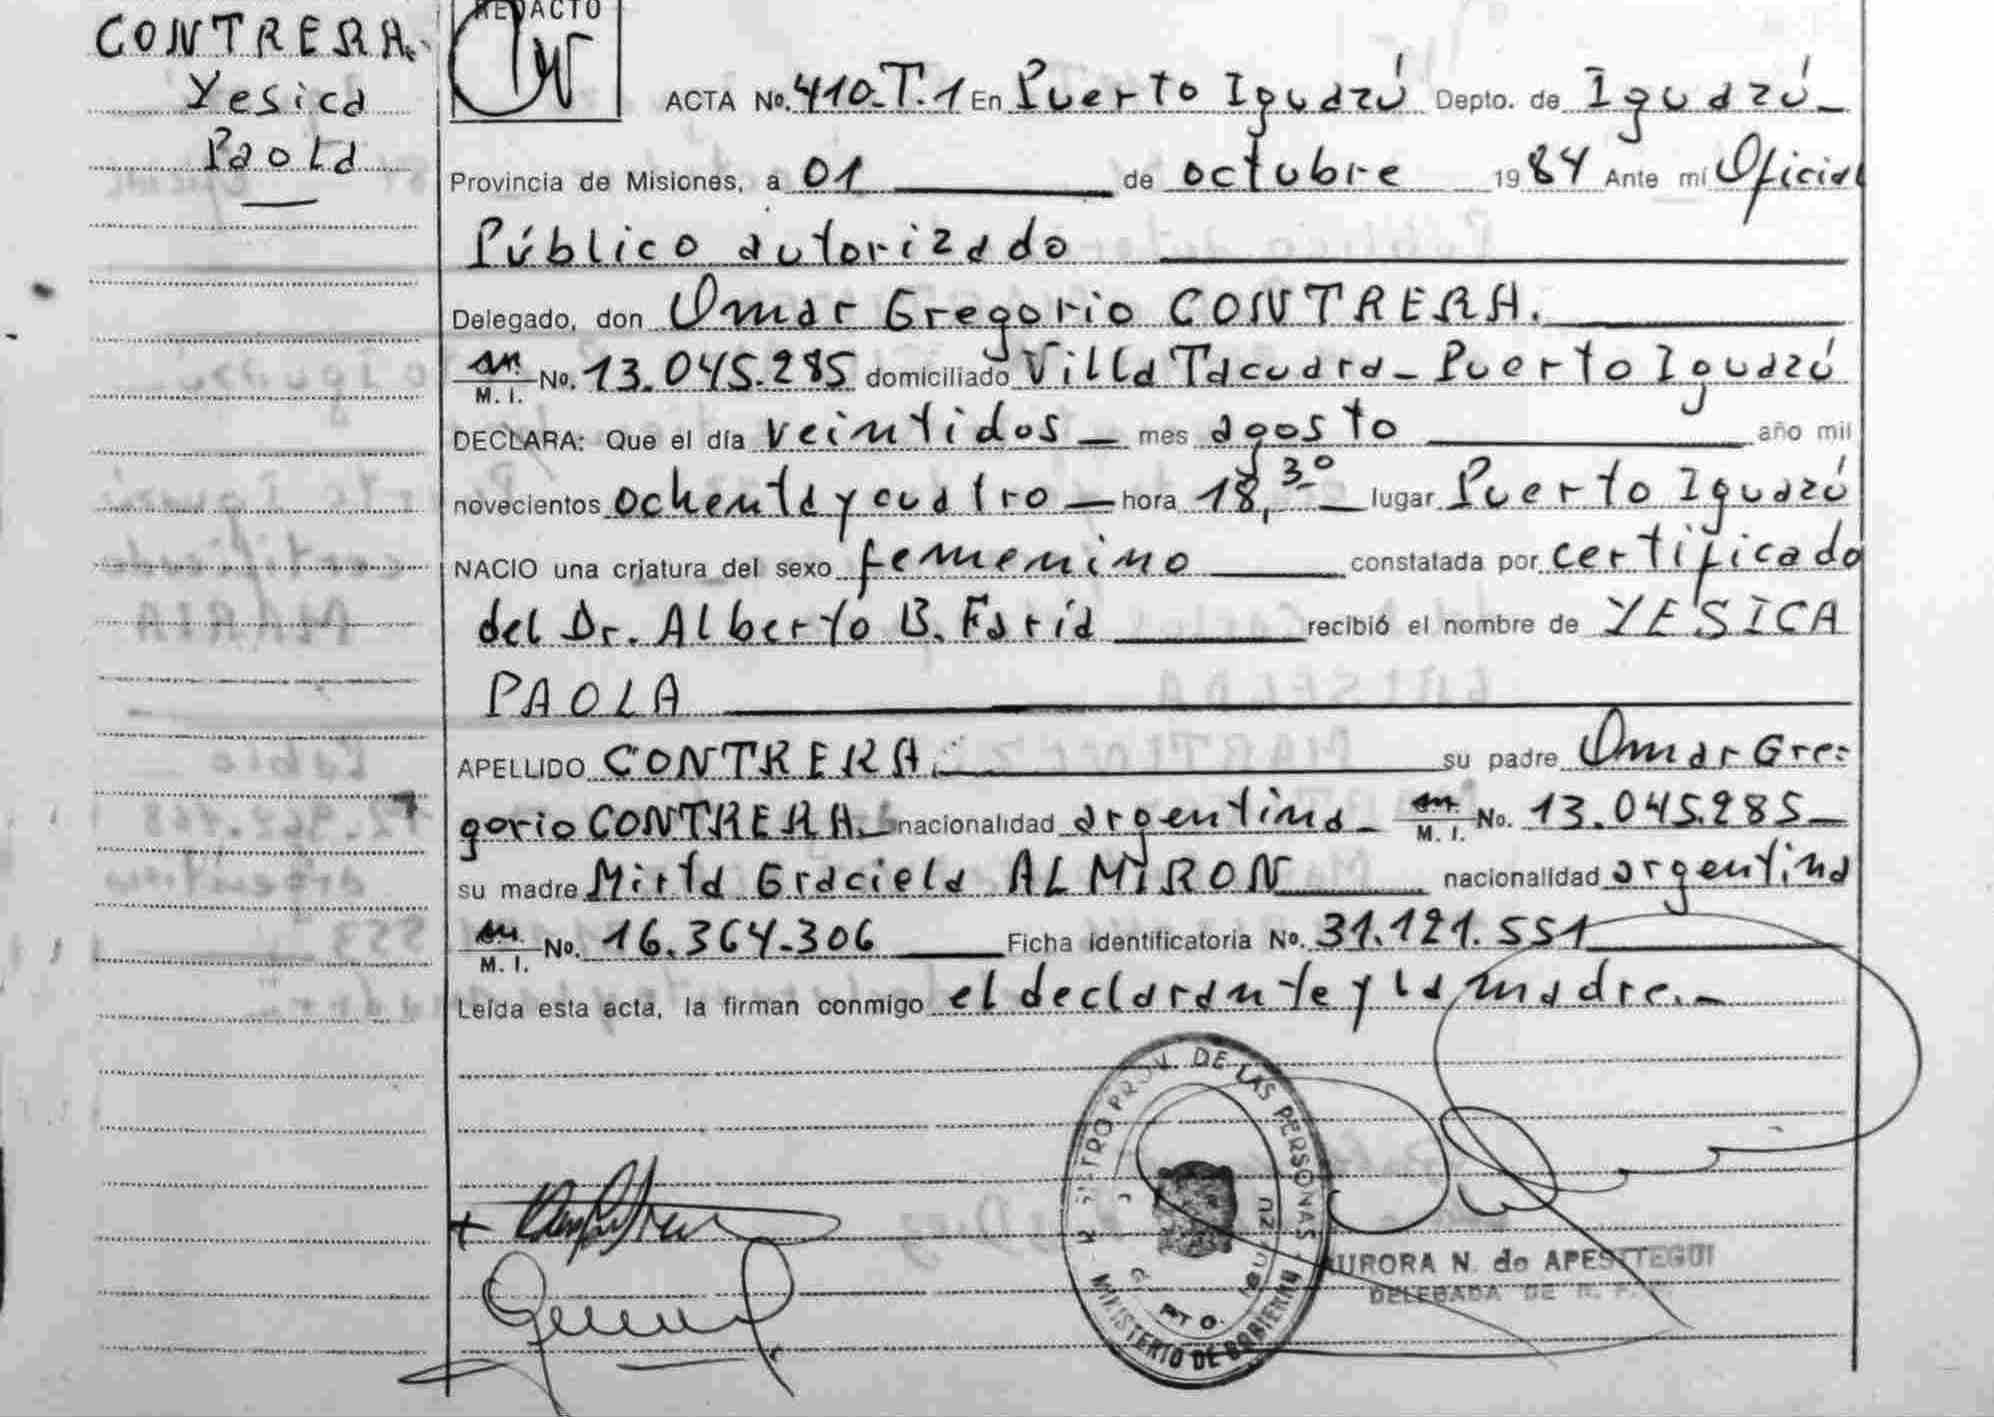 CONTRERA.
Yesica
Paola
REDACTO
ACTA No. 410-T.1 En Puerto Iguazú Depto. de Iguazú
Provincia de Misiones, a 01 de octubre 1984 Ante mi Oficial
Público autorizado
Delegado, don Omar Gregorio CONTRERA.
M. I. No. 13.045.285 domiciliado Villa Tacuara - Puerto Iguazú
DECLARA: Que el día veintidos mes agosto año mil
novecientos ochenta y cuatro hora 18,30 lugar Puerto Iguazú
NACIO una criatura del sexo femenino constatada por certificado
del Dr. Alberto B. recibió el nombre de YESICA
PAOLA
APELLIDO CONTRERA. su padre Omar Gre=
gorio CONTRERA. nacionalidad argentina M. I. No. 13.045.285
su madre Mirta Graciela ALMIRON nacionalidad argentina
M. I. No. 16.364.306 Ficha identificatoria No. 31.121.551
Leída esta acta, la firman conmigo el declarante y la madre.-
PROV. DE LAS PERSONAS
MINISTERIO DE GOBIERNO
AURORA N. de APESTEGUI
DELEGADA DE R. P.